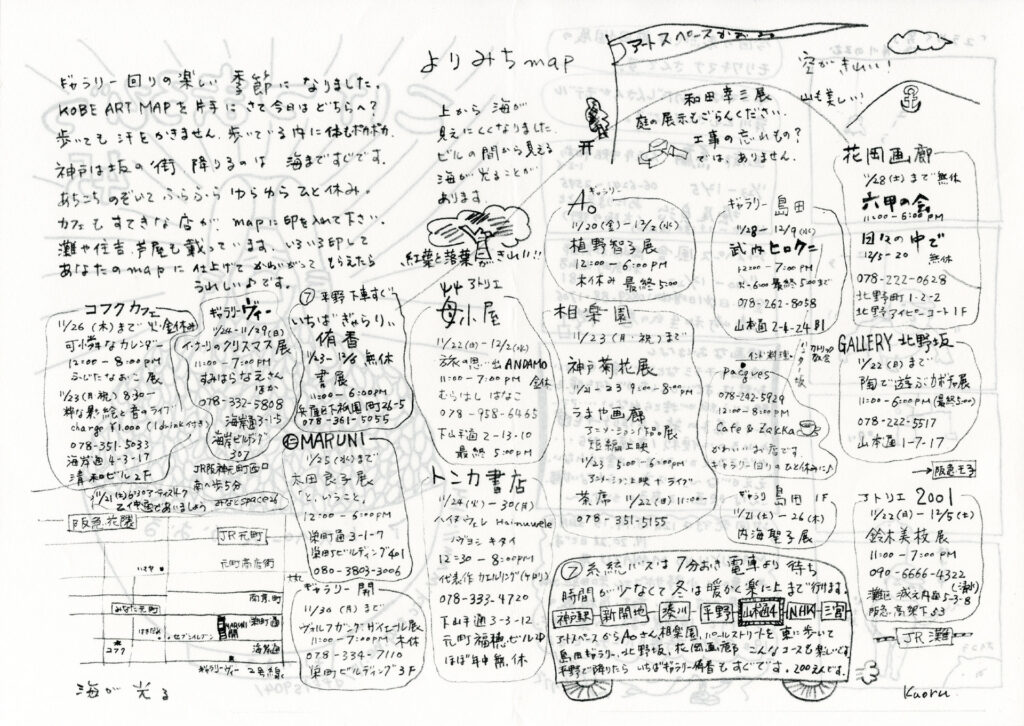 よりみち map
ギャラリー回りの楽しい季節になりました。
KOBE ART MAPを片手に さて今日はどちらへ?
歩いても汗をかきません。歩いている内に体もポカポカ。
神戸は坂の街 降りるのは 海まですぐです。
あちこちのぞいて ふらふら ゆらゆら ひと休み。
カフェもすてきな店が mapに印を入れて下さい。
灘や住吉、芦屋も載っています。いろいろ印して
あなたのmapに仕上げて かわいがって もらえたら
うれしいです。
上から海が
見えにくくなりました。
ビルの間から見える
海が光ることが
あります
紅葉と落葉がきれい!!
アートスペースかおる
和田幸三展
庭の展示もごらんください。
工事の忘れもの?
では、ありません。
空がきれい!
山も美しい!
コフクカフェ
11/26(木)まで 火・金休み
可憐なカレンダー
12:00-8:00PM
ふじたなおこ展
11/23(月・祝) 8:30-
絵と音のライブ
charge ¥1,000 (1drink付き)
078-351-5033
海岸通4-3-17
清和ビル2F
ギャラリーヴィー
11/24-11/29(日)
イ・ブリのクリスマス展
11:00-7:00PM
すみはらなえさん
ほか
078-332-5808
海岸通3-1-5
海岸ビルヂング
307
JR阪神元町西口
南へ歩5分
みなとspace26
⑦平野下車すぐ
いちばぎゃらりぃ
侑香
無休
書展
11:00-6:00PM
兵庫区下祇園町26-5
078-361-5055
MARUNI
11/25(水)まで
太田良子展
「と、いうこと。」
12:00-6:00PM
栄町通3-1-7
栄町ビルディング401
080-3803-3006
ギャラリー 開
11/30(月)まで
ヴォルフガングサイフェル展
11:00-7:00PM 木休
078-334-7110
栄町ビルディング3F
アトリエ
母小屋
11/22(日)-12/2(水)
旅の思い出 ANDAMO
11:00-7:00PM 金休
むらはし はなこ
078-958-6465
下山手通2-13-10
最終5:00PM
トンカ書店
11/24(火)-30(月)
ハイヌウェレ Hainuwele
ノヴヨシキタイ
12:30-8:00PM
078-333-4720
下山手通3-3-12
元町福穂ビル2F
ほぼ年中無休
ギャラリー
Ao
11/20(金)-12/2(水)
植野智子展
12:00-6:00PM
木休み 最終5:00
相楽園
11/23(月・祝)まで
神戸菊花展
11/21-23 9:00-8:00PM
うまや画廊
アニメーション作品展
短編上映
11/23 5:00-6:00PM
アニメーション上映+ライブ
茶席 11/22(日) 11:00-
078-351-5155
ギャラリー 島田
11/28-12/9(水)
武内ヒロクニ
12:00-7:00PM
火-6:00 最終5:00まで
078-262-8058
山本通2-4-24 B1
インド料理
カトリック教会
ハンター坂
pacques
078-242-5929
12:00-8:00PM
Cafe & Zakka
かわいいお店です。
ギャラリー回りのひと休みに♪
ギャラリー島田1F
11/21(土)-26(木)
内海聖子展
花岡画廊
11/28(土)まで 無休
六甲の会
11:00-6:00PM
日々の中で
12/5-20 無休
078-222-0628
北野町1-2-2
北野アイビーコート1F
GALLERY 北野坂
11/22(日)まで
陶で遊ぶカボチャ展
11:00-6:00PM(最終5:00)
078-222-5517
山本通1-7-17
阪急王子
アトリエ 2001
11/22(日)-12/5(土)
鈴木美枝展
11:00-7:00PM
090-6666-4322
灘区城の内通5-3-8
阪急高架下53
JR灘
阪急花隈
JR元町
元町商店街
南京町
みなと元町
セブンイレブン
MARUNI
開
栄町通
コフク
海岸通
ギャラリーヴィー
2号線
⑦系統バスは 7分おき 電車より待ち
時間が少なくて 冬は暖かく楽に上まで行けます。
神戸駅 新開地 湊川 平野 山本通4 NHK 三宮
アートスペースからAoさん、相楽園、パールストリートを東に歩いて
島田ギャラリー、北野坂、花岡画廊 こんなコースも楽しいです。
平野で降りたら いちばギャラリー侑香もすぐです。200えんです。
海が光る
Kaoru